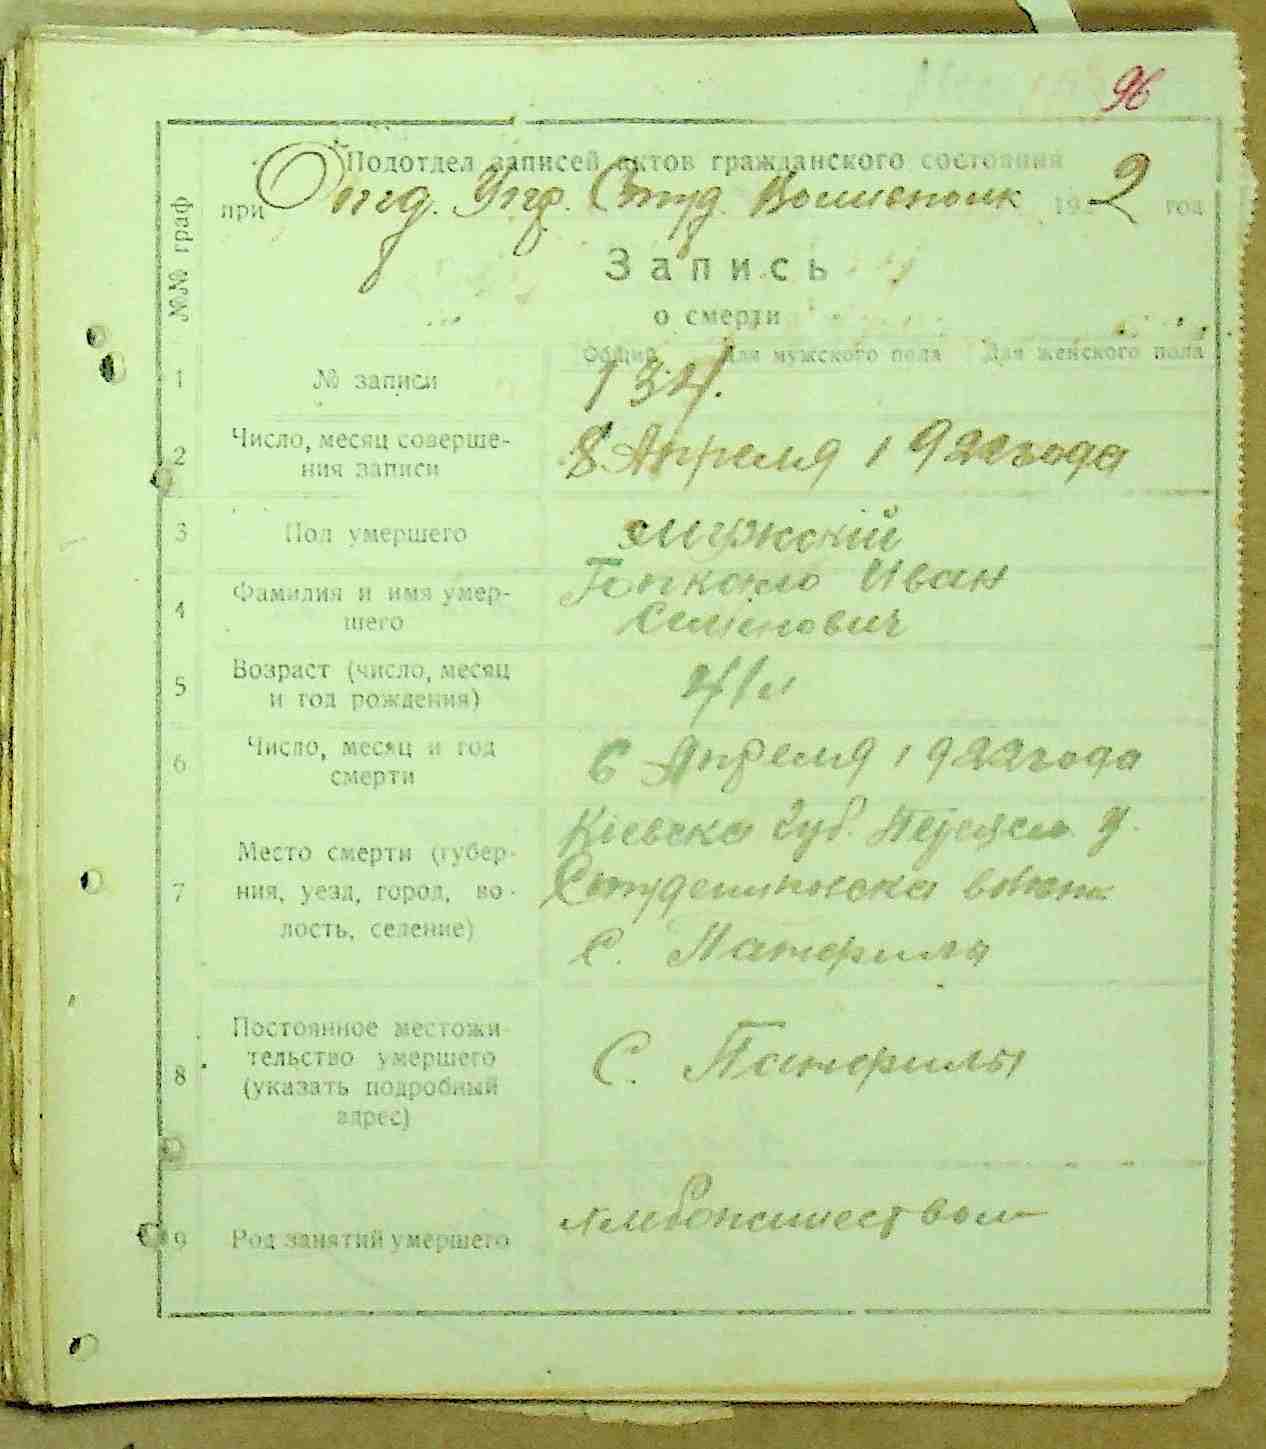 96
Подотдел записей актов гражданского состояния
при Отд. Упр. Студ. Волисполк 1922 год
№№ граф
Запись
о смерти
Общий Для мужского пола Для женского пола
1 № записи 134.
2 Число, месяц соверше-
ния записи 8 Апреля 1922 года
3 Пол умершего Мужский
4 Фамилия и имя умер-
шего Иван
Семенович
5 Возраст (число, месяц
и год рождения) 41 л
6 Число, месяц и год
смерти 6 Апреля 1922 года
7 Место смерти (губер-
ния, уезд, город, во-
лость, селение) Кіевска Губ. У.
Студениковска
С. Панфилы
8 Постоянное местожи-
тельство умершего
(указать подробный
адрес) С. Панфилы
9 Род занятий умершего хлебопашеством